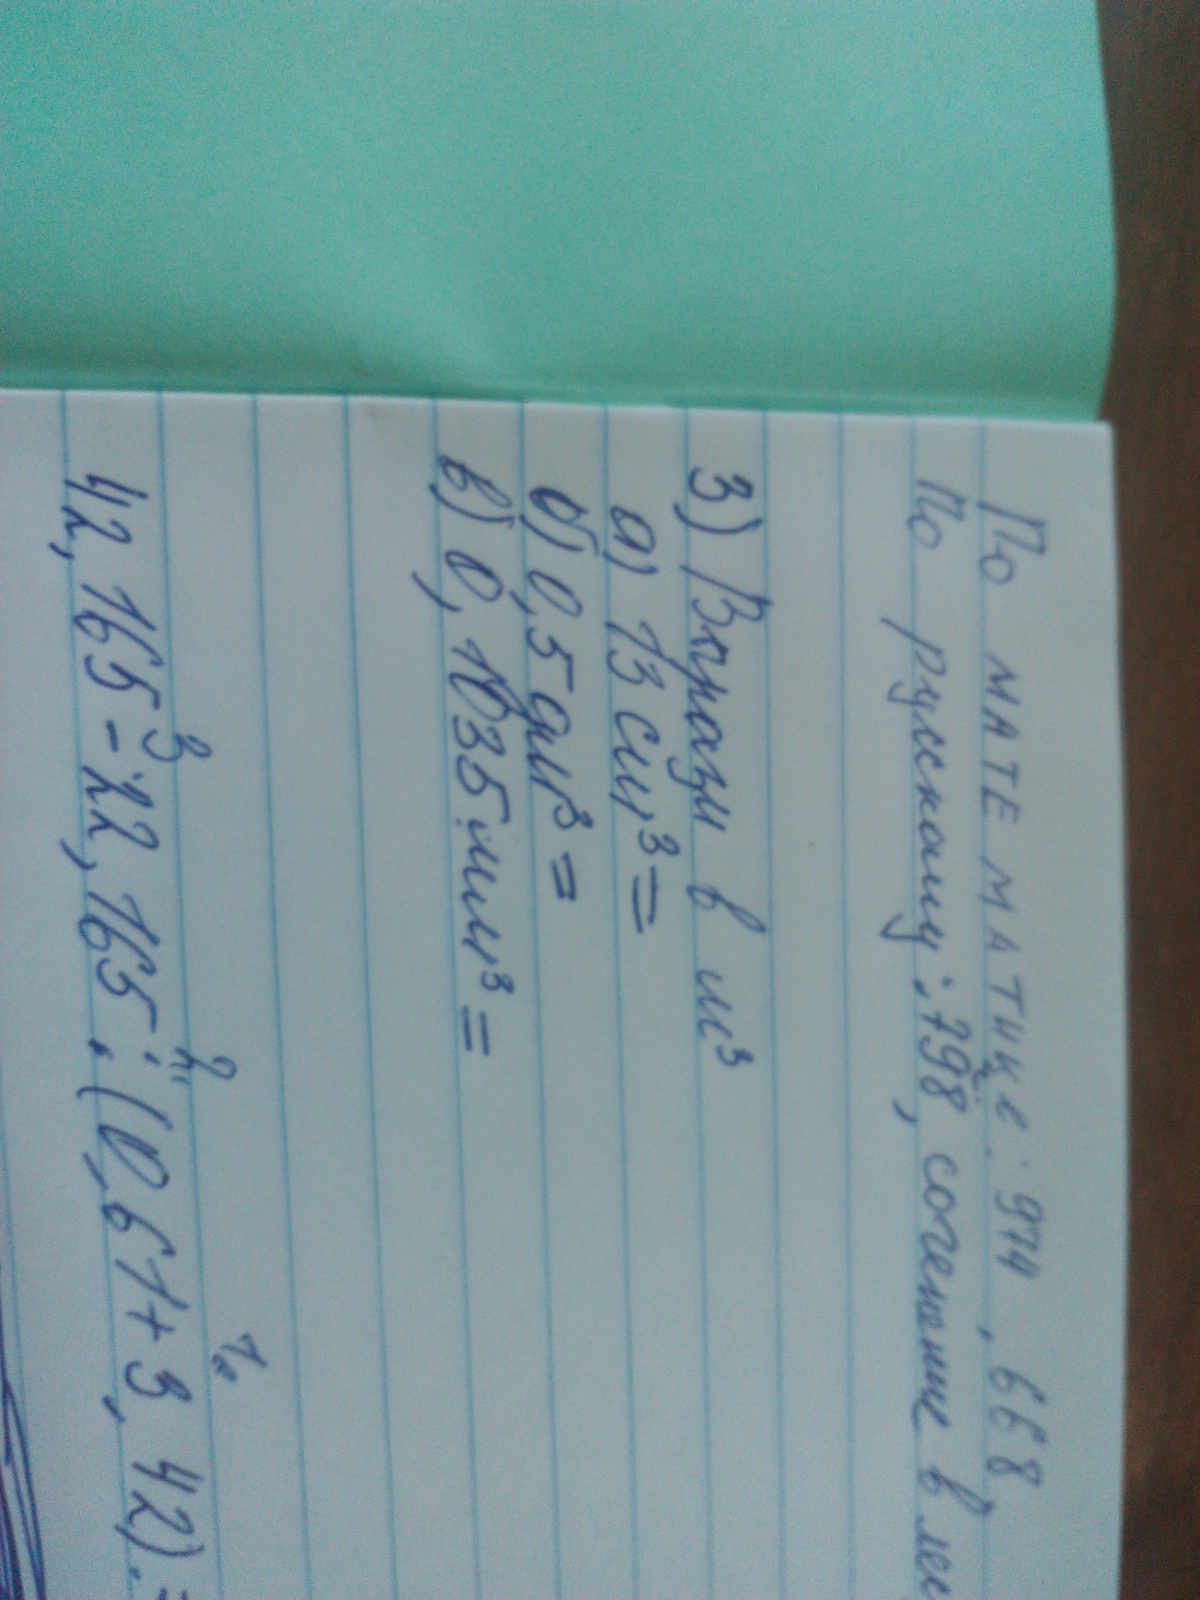 По математике: 974, 668,
По русскому: 798, сочинение в
3) Вырази в м³
а) 13 см³ =
б) 0,5 дм³ =
в) 0,1035 мм³ =
3 2 1
42,165 - 22,165 : (0,61 + 3,42) =